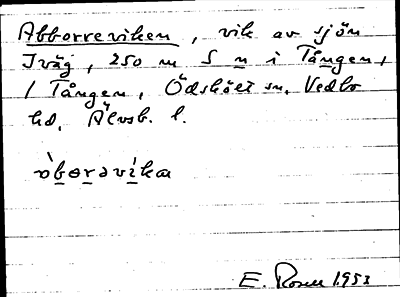 Abborreviken, vik av sjön
Iväg, 250 m S n i Tången,
1 Tången, Ödsköl sn, Vedbo
hd, Älvsb. l.
E. Rosell 1953